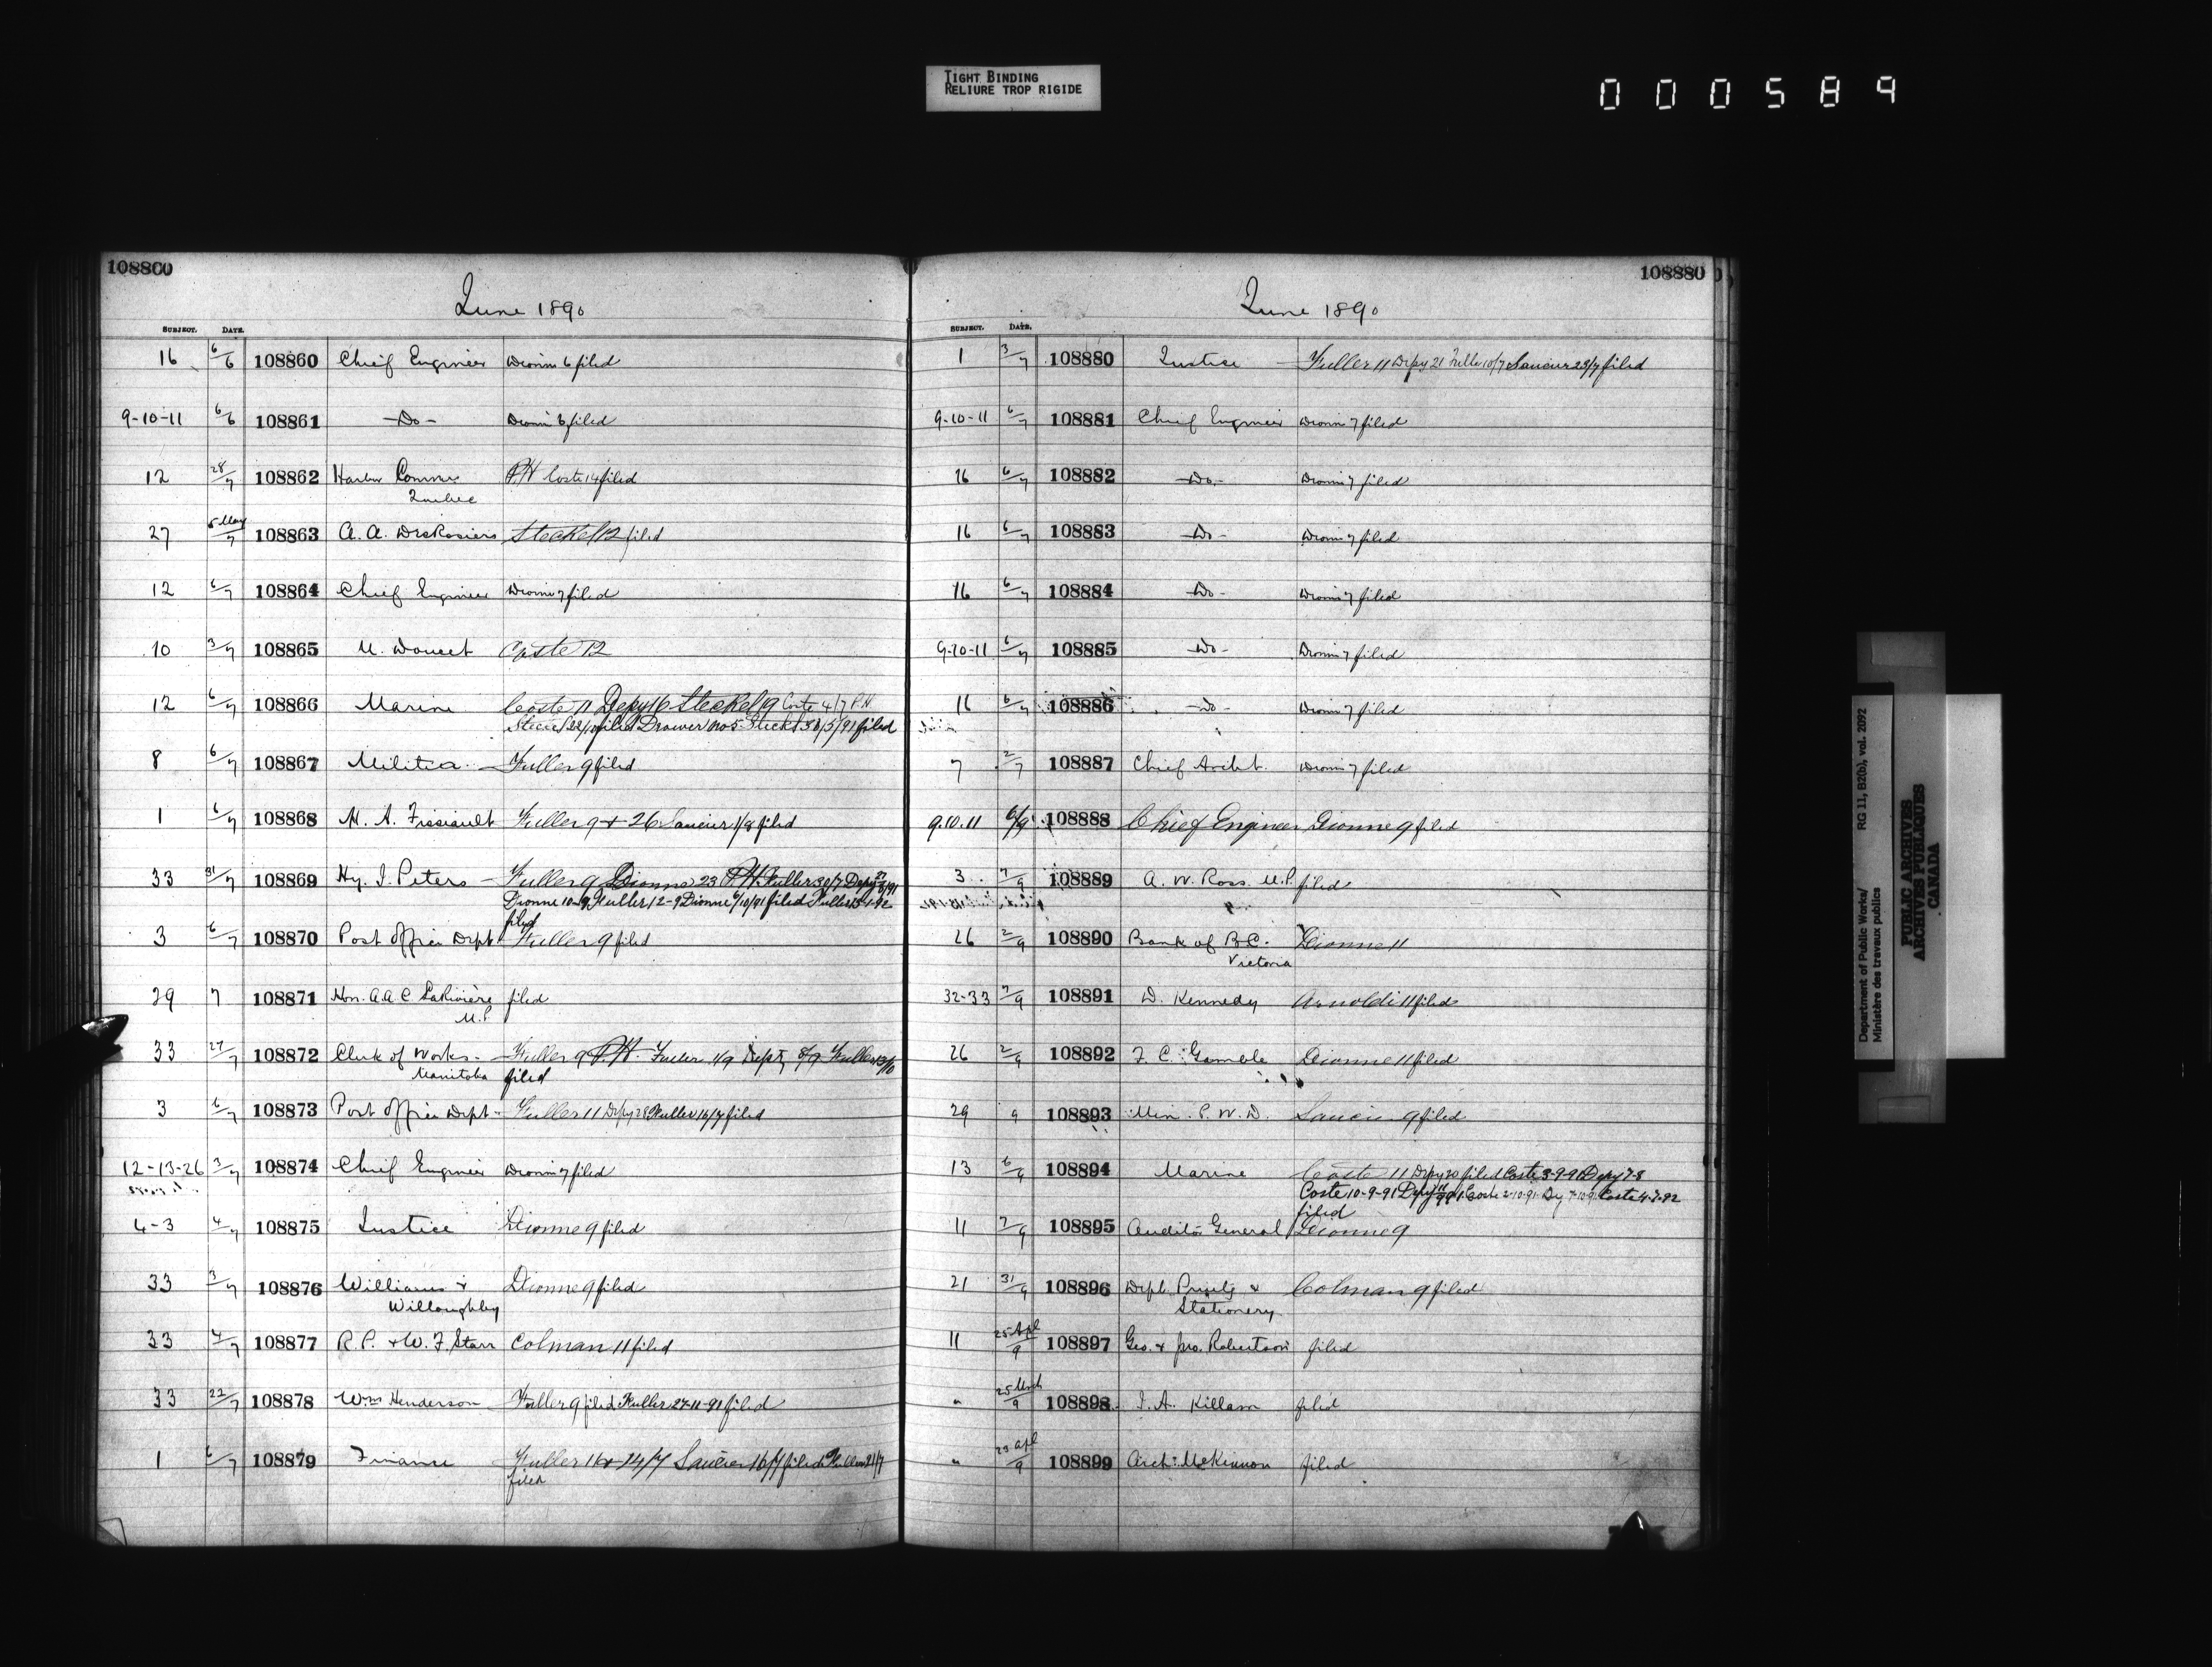 TIGHT BINDING
RELIURE TROP RIGIDE
000589
108860
June 1890
SUBJECT. DATE.
16 6/6 108860 Chief Engineer Dionne 6 filed
9-10-11 6/6 108861 -Do- Dionne 6 filed
12 28/7 108862 Harbor Commrs PH Coste 14 filed
Quebec
27 5 May/7 108863 A. A. DesRosiers Steckel 12 filed
12 6/7 108864 Chief Engineer Dionne 7 filed
10 3/7 108865 M. Doucet Coste 12
12 6/7 108866 Marine Coste 11 Depy 16 Steckel 19 Coste 4/7 PH
filed Drawer No 5 Steckel 30/5/91 filed
8 6/7 108867 Militia Fuller 9 filed
1 6/7 108868 H. A. Fissiault Fuller 9 + 26 Saucier 1/8 filed
33 31/7 108869 Hy. J. Peters - Fuller 9 Dionne 23 PH Fuller 30/7 Depy
Dionne 10-9 Fuller 12-9 Dionne 6/10/91 filed Fuller
filed
3 6/7 108870 Post Office Dept Fuller 9 filed
29 7 108871 Hon. A A C LaRivière filed
M.P
33 27/7 108872 Clerk of Works - Fuller 9 PH Fuller 1/9 Depy 8/9 Fuller 13/10
Manitoba filed
3 6/7 108873 Post Office Dept - Fuller 11 Depy 28 Fuller 16/7 filed
12-13-26 3/7 108874 Chief Engineer Dionne 7 filed
4-3 4/7 108875 Justice Dionne 9 filed
33 3/7 108876 Williams & Dionne 9 filed
Willoughby
33 4/7 108877 R. P. & W. F. Starr Colman 11 filed
33 22/7 108878 Wm Henderson Fuller 9 filed Fuller 27-11-91 filed
1 6/7 108879 Finance Fuller 16 + 14/7 Saucier 16/7 filed Fuller 21/7
filed
108880
June 1890
SUBJECT. DATE.
1 3/7 108880 Justice - Fuller 11 Depy 21 Fuller 10/7 Saucier 23/7 filed
9-10-11 6/7 108881 Chief Engineer Dionne 7 filed
16 6/7 108882 -Do- Dionne 7 filed
16 6/7 108883 -Do- Dionne 7 filed
16 6/7 108884 -Do- Dionne 7 filed
9-10-11 6/7 108885 -Do- Dionne 7 filed
16 6/7 108886 -Do- Dionne 7 filed
7 2/7 108887 Chief Archt. Dionne 7 filed
9.10.11 6/9 108888 Chief Engineer Dionne 9 filed
3 7/9 108889 A. W. Ross M.P. filed
26 2/9 108890 Bank of B.C. Dionne 11
Victoria
32-33 7/9 108891 D. Kennedy Arnoldi 11 filed
26 2/9 108892 F. C. Gamble Dionne 11 filed
29 9 108893 Min. P. W. D. Saucier 9 filed
13 6/9 108894 Marine Coste 11 Depy 20 filed Coste 3-9-91 Depy 7-8
Coste 10-9-91 Depy Coste 2-10-91 Dy 7-10-91 Coste 4-7-92
filed
11 7/9 108895 Auditor General Dionne 9
21 31/9 108896 Dept. Printg & Colman 9 filed
Stationery
11 25 Apl/9 108897 Geo. & Jno. Robertson filed
" 25 Mch/9 108898 I. A. Killam filed
" 23 Apl/9 108899 Arch: McKinnon filed
Department of Public Works/
Ministère des travaux publics
RG 11, B2(b), vol. 2092
PUBLIC ARCHIVES
ARCHIVES PUBLIQUES
CANADA